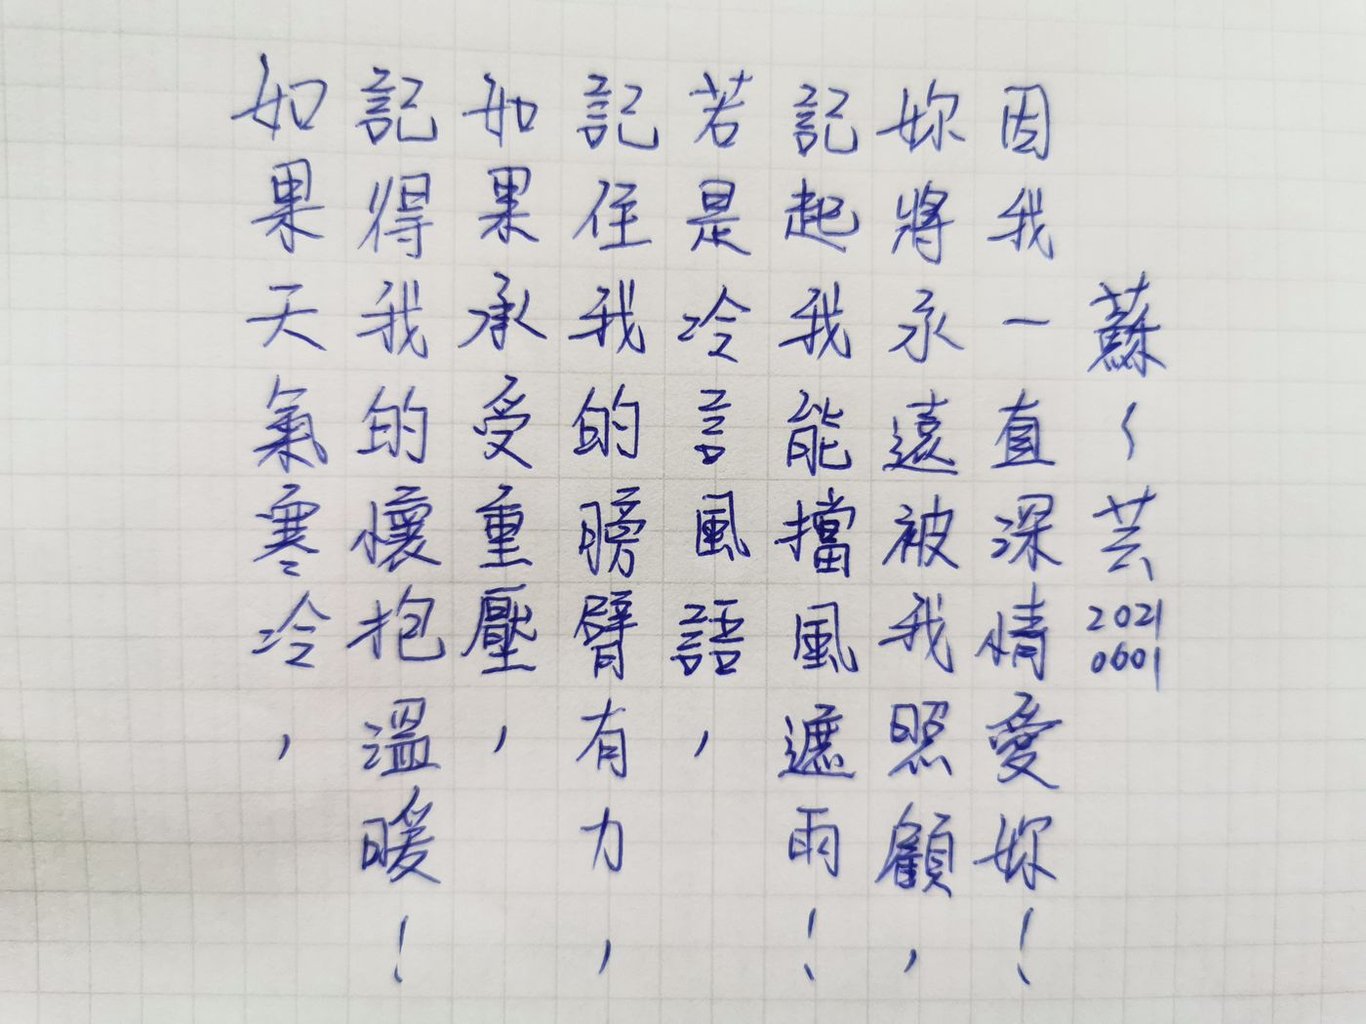 如果天氣寒冷，
記得我的懷抱溫暖！
如果承受重壓，
記住我的膀臂有力，
若是冷言風語，
記起我能擋風遮雨！
妳將永遠被我照顧，
因我一直深情愛妳！
蘇～芸 2021 0601